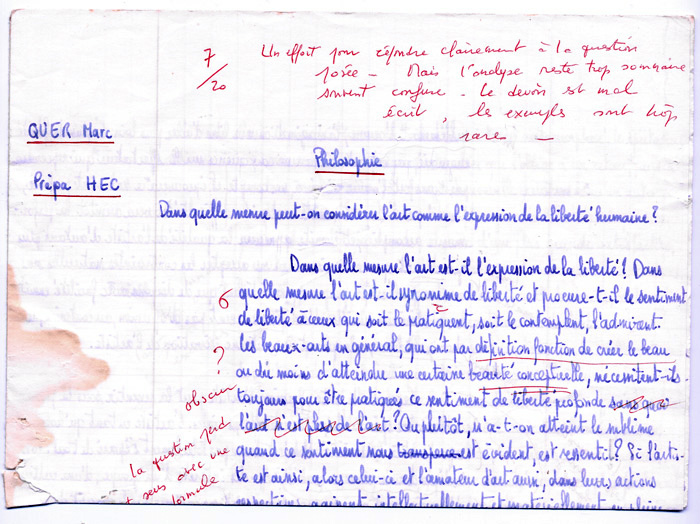 7/20
Un effort pour répondre clairement à la question
posée - Mais l'analyse reste trop sommaire
souvent confuse. Le devoir est mal
écrit, les exemples sont trop
rares -
QUER Marc
Philosophie
Prépa HEC
Dans quelle mesure peut-on considérer l'art comme l'expression de la liberté humaine ?
Dans quelle mesure l'art est-il l'expression de la liberté ? Dans
quelle mesure l'art est-il synonime de liberté et procure-t-il le sentiment
de liberté à ceux qui soit le pratiquent, soit le contemplent, l'admirent.
Les beaux-arts en général, qui ont par définition fonction de créer le beau
?
ou du moins d'atteindre une certaine beauté conceptuelle, nécessitent-ils
obscur
toujours pour être pratiqués ce sentiment de liberté profonde sans quoi
l'art n'est plus de l'art ? Ou plutôt, n'a-t-on atteint le sublime
la question perd
quand ce sentiment nous est évident, est ressenti ? Si l'artis-
sens avec une
te est ainsi, alors celui-ci et l'amateur d'art aussi, dans leurs actions
formule
respectives, agissent intellectuellement et matériellement en